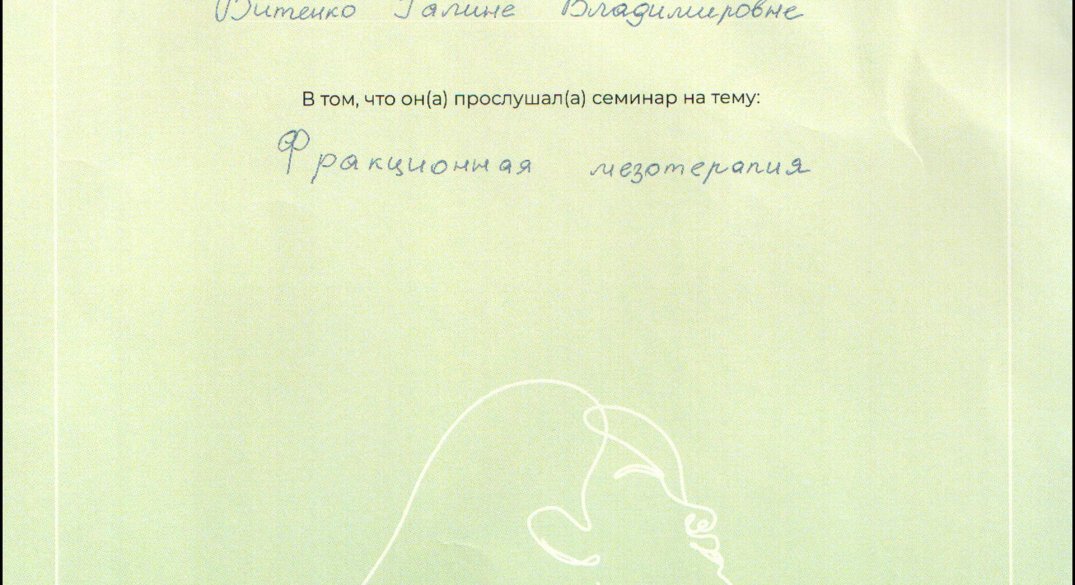 Витенко Галине Владимировне
В том, что он(а) прослушал(а) семинар на тему:
Фракционная мезотерапия